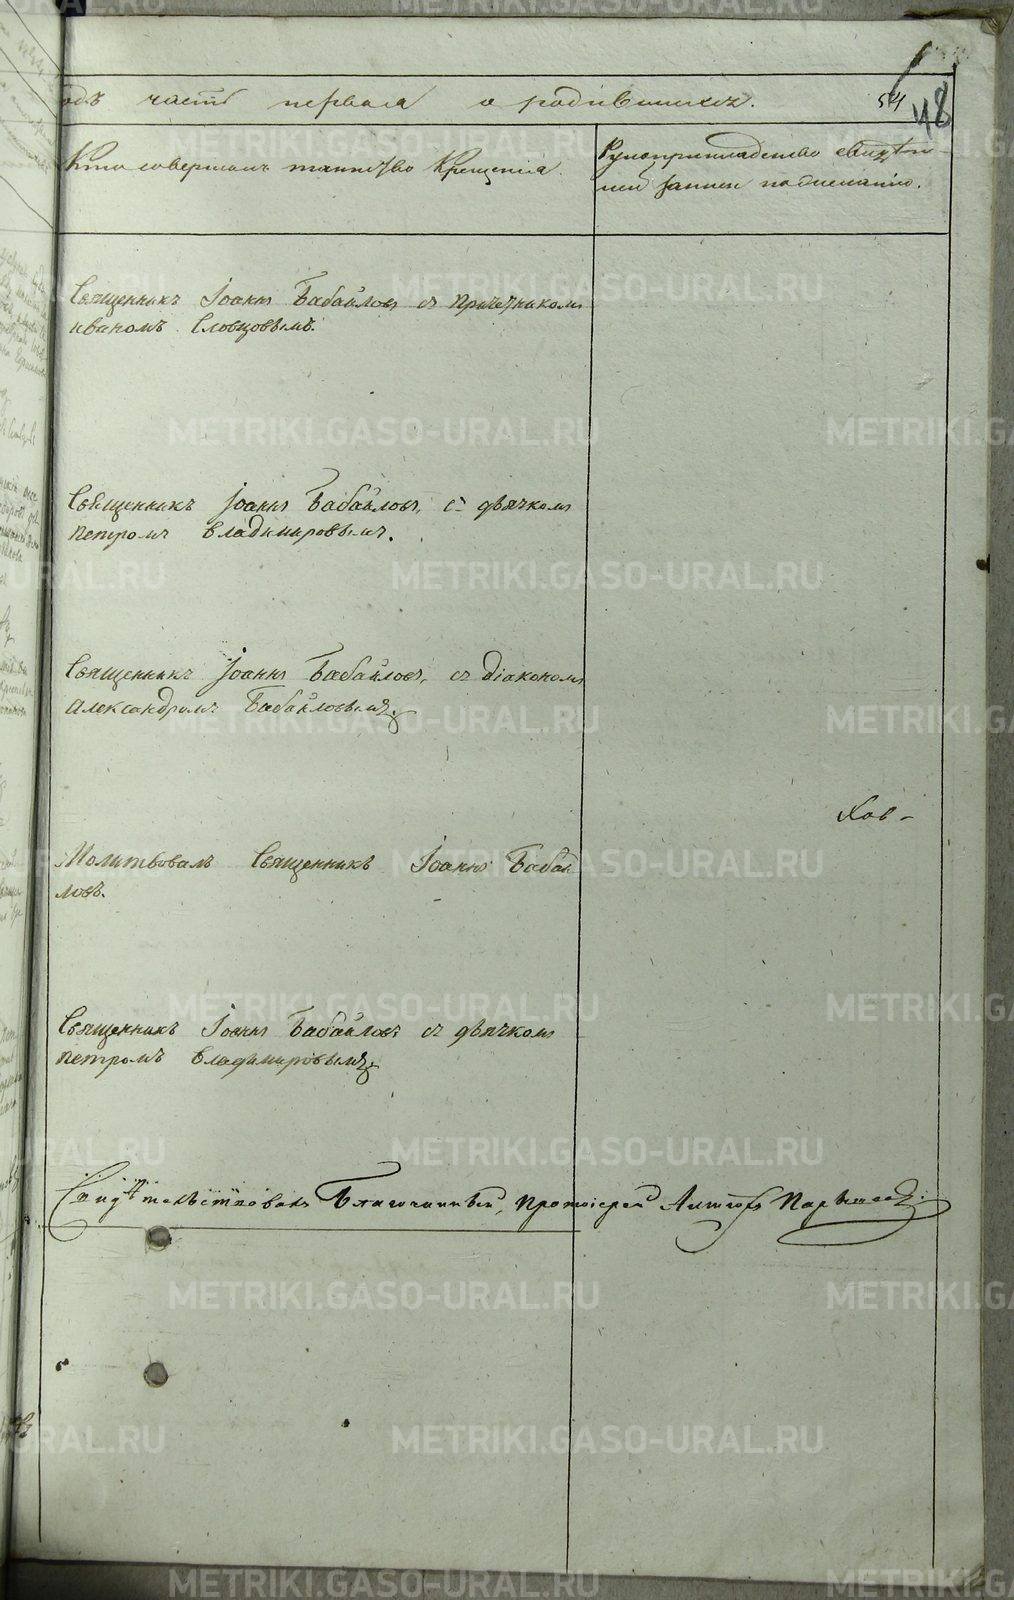 одъ часть первая о родившихся. 54
48
Кто совершалъ таинство Крещенія.
Рукоприкладство свидѣте-
лей записи по желанію.
Священникъ Іоаннъ Бабайловъ съ причетникомъ
иваномъ Словцовымъ.
Священникъ Іоаннъ Бабайловъ, съ дьячкомъ
петромъ владимировымъ.
Священникъ Іоаннъ Бабайловъ, съ діакономъ
александромъ Бабайловымъ.
Хов-
Молитвовалъ Священникъ Іоаннъ Бабай
ловъ.
Священникъ Іоаннъ Бабайловъ съ дьячкомъ
петромъ владимировымъ
Свидѣтельствовалъ Благочинный, протоіерей
METRIKI.GASO-URAL.RU